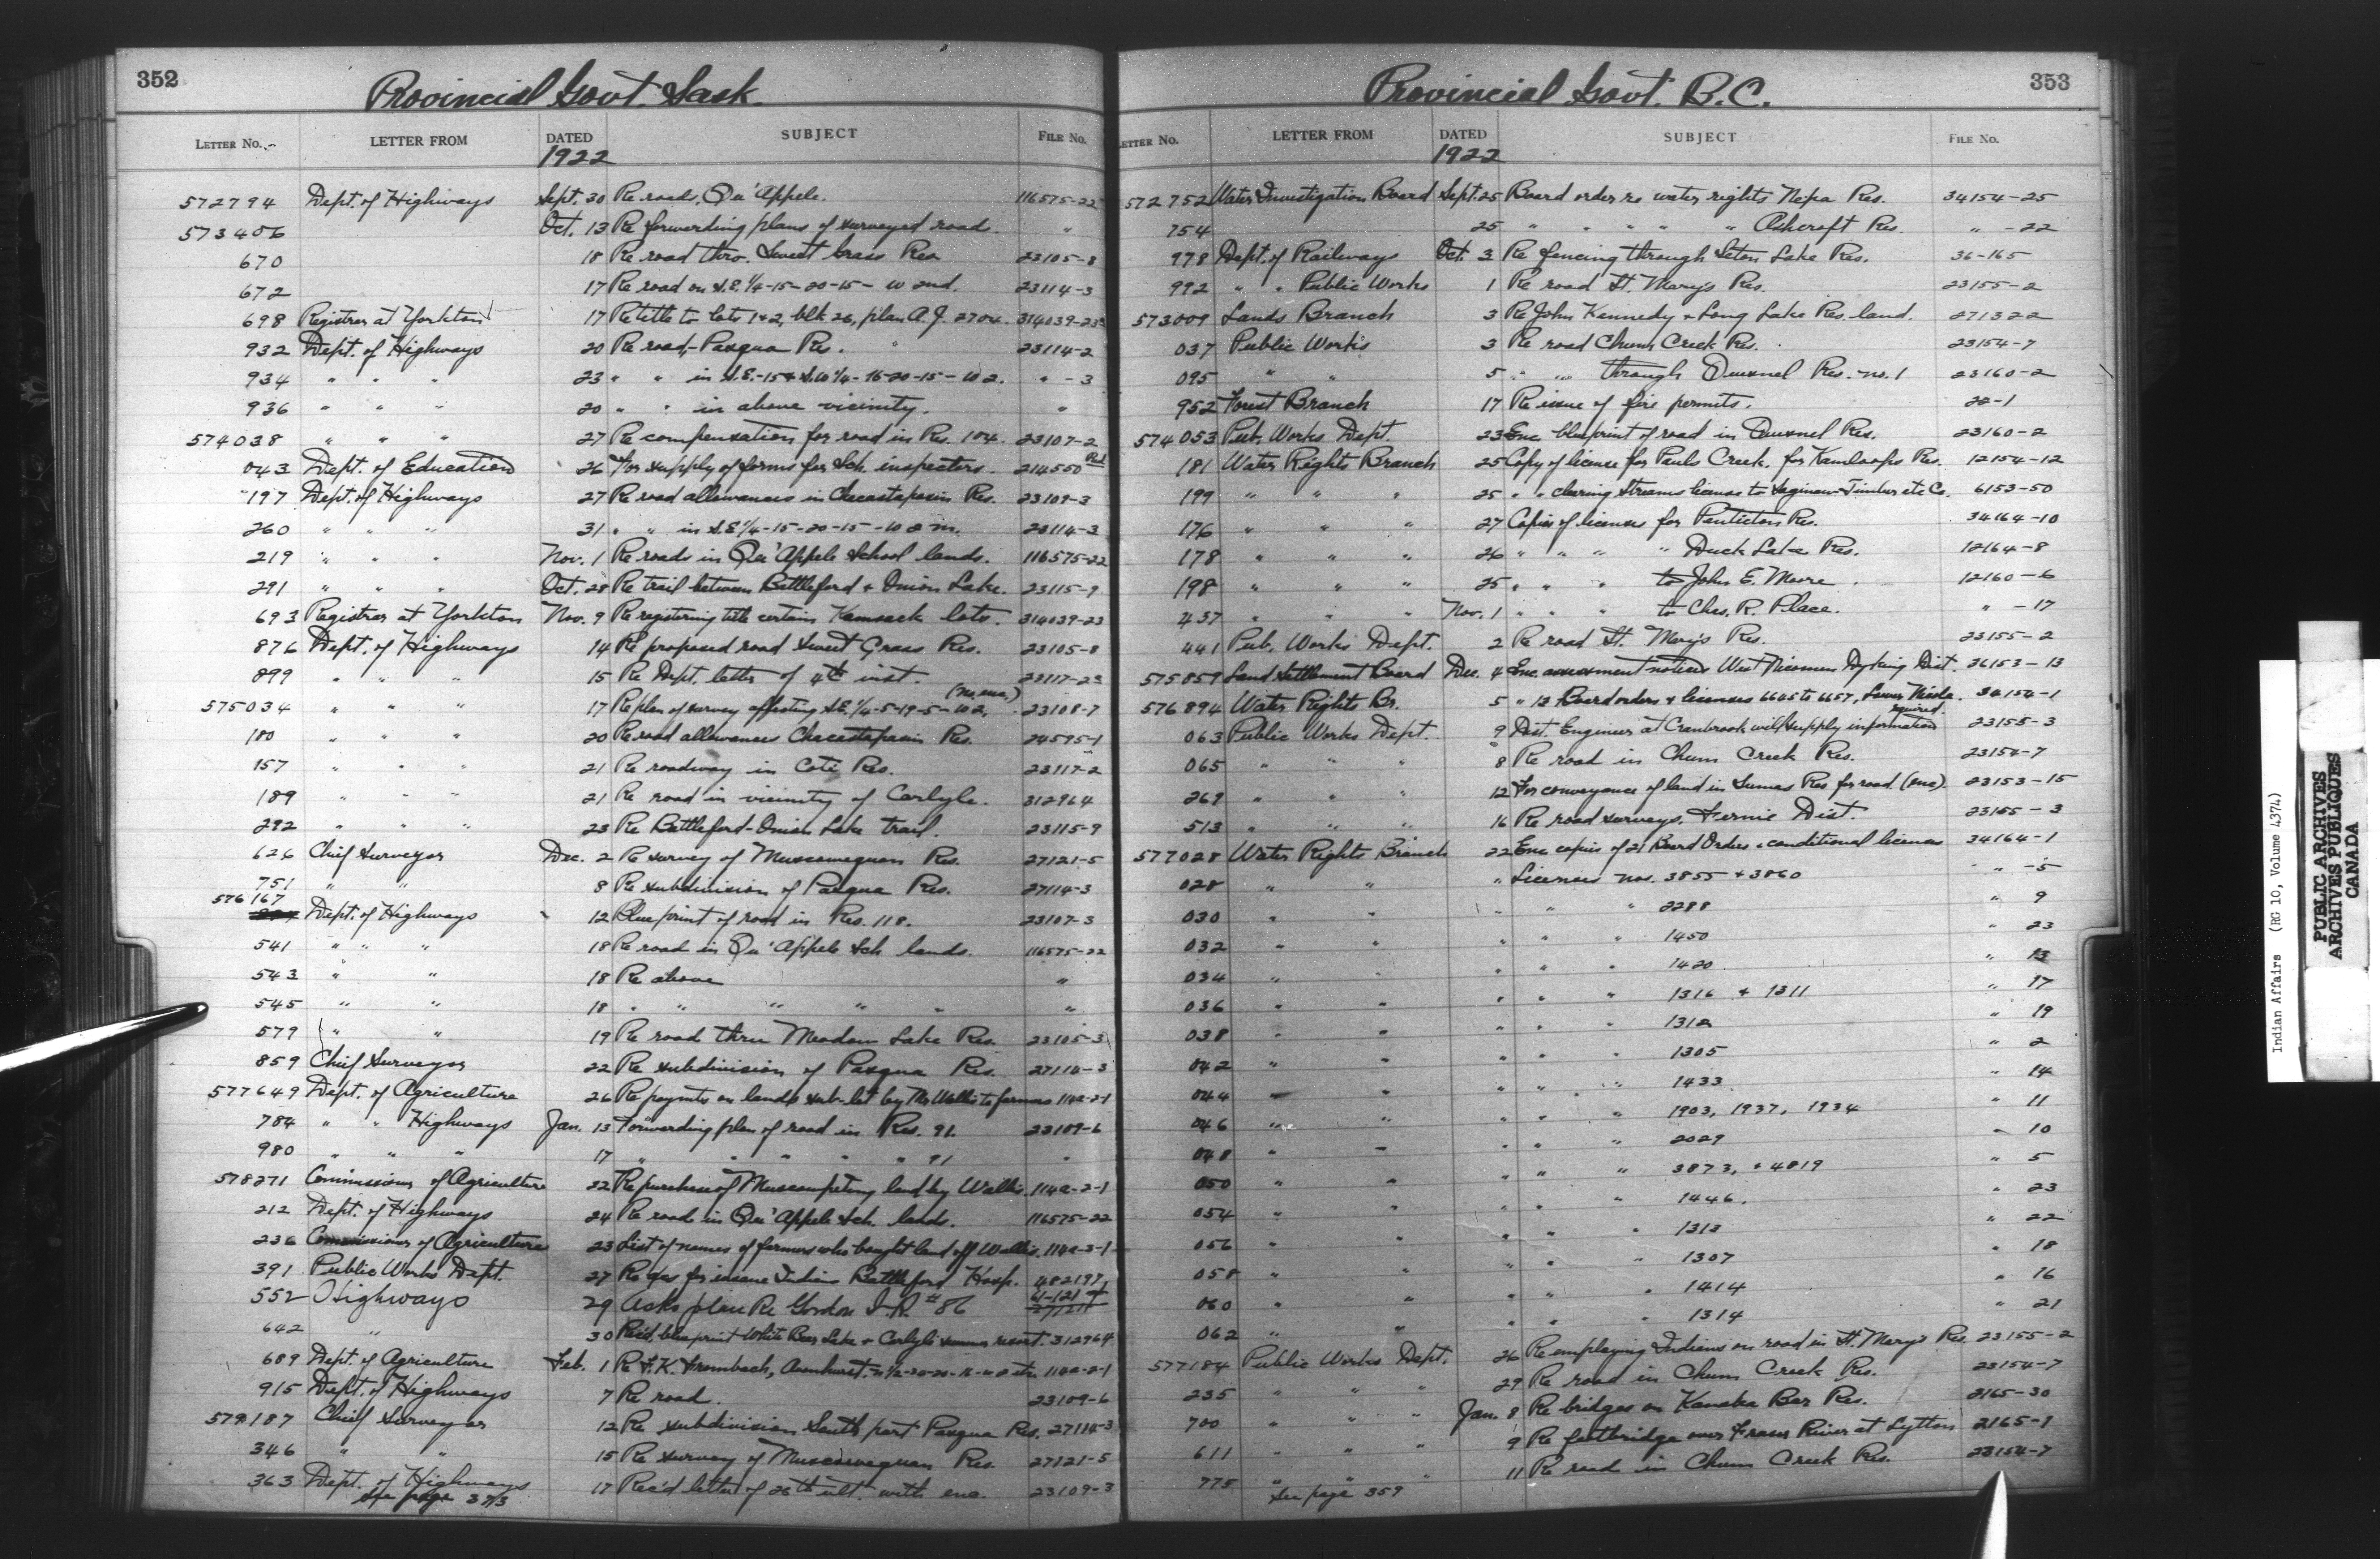 352
Provincial Govt. Sask.
LETTER No. LETTER FROM DATED SUBJECT FILE No.
1922
572794 Dept. of Highways Sept. 30 Re roads, Qu'Appele. 116575-22
573406 Oct. 13 Re forwarding plans of surveyed road. "
670 18 Re road thro. Sweet Grass Res. 23105-8
672 17 Re road on S.E. 1/4-15-20-15-W 2nd. 23114-3
698 Registrar at Yorkton 17 Re title to lots 1+2, blk. 26, plan A.J. 2704. 314039-23
932 Dept. of Highways 20 Re road, Pasqua Res. 23114-2
934 " " " 23 " " in S.E.-15+S.W 1/4-16-20-15-W 2. " -3
936 " " " 20 " " in above vicinity. "
574038 " " " 27 Re compensation for road in Res. 104. 23107-2
043 Dept. of Education 26 For supply of forms for Sch. inspectors. 214550
197 Dept. of Highways 27 Re road allowances in Chacastapasin Res. 23109-3
260 " " " 31 " " in S.E 1/4-15-20-15-W 2 m. 23114-3
219 " " " Nov. 1 Re roads in Qu'Appele School lands. 116575-22
291 " " " Oct. 28 Re trail between Battleford + Onion Lake. 23115-9
693 Registrar at Yorkton Nov. 9 Re registering title certain Kamsack lots. 314039-23
876 Dept. of Highways 14 Re proposed road Sweet Grass Res. 23105-8
899 " " " 15 Re Dept. letter of 4th inst. 23117-23
575034 " " " 17 Re plan of survey affecting S.E. 1/4-5-19-5-W 2, (no enc.) 23108-7
180 " " " 20 Re road allowances Chacastapasin Res. 24595-1
157 " " " 21 Re roadway in Coté Res. 23117-2
189 " " " 21 Re road in vicinity of Carlyle. 312964
292 " " " 23 Re Battleford-Onion Lake trail. 23115-9
626 Chief Surveyor Dec. 2 Re survey of Muscowequan Res. 27121-5
751 " " 8 Re subdivision of Pasqua Res. 27114-3
576167 Dept. of Highways 12 Blueprint of road in Res. 118. 23107-3
541 " " " 18 Re road in Qu'Appele Sch lands. 116575-22
543 " " 18 Re above "
545 " " 18 " " " " " "
579 " " 19 Re road thru Meadow Lake Res. 23105-3
859 Chief Surveyor 22 Re subdivision of Pasqua Res. 27114-3
577649 Dept. of Agriculture 26 Re paymts on lands sub-let by Mr Wallis to farmers 114a-2-1
784 " " Highways Jan. 13 Forwarding plan of road in Res. 91. 23109-6
980 " " " 17 " " " " " 91 "
578271 Commissioner of Agriculture 22 Re purchase of Muscowpetung land by Wallis. 114a-2-1
212 Dept. of Highways 24 Re road in Qu'Appele Sch. lands. 116575-22
236 Commissioner of Agriculture 23 List of names of farmers who bought land off Wallis. 114a-3-1
391 Public Works Dept. 27 Re gas for insane Indian Battleford Hosp. 482197
552 Highways 29 Asks plan Re Gordon I.R. #86
642 " 30 Rec'd. blueprint White Bear Lake + Carlyle summer resort. 312964
689 Dept. of Agriculture Feb. 1 Re F.K. 114a-2-1
915 Dept. of Highways 7 Re road. 23109-6
579187 Chief Surveyor 12 Re subdivision South part Pasqua Res. 27114-3
346 " " 15 Re survey of Muscowequan Res. 27121-5
363 Dept. of Highways 17 Rec'd letter of 26th ult. with enc. 23109-3
See page 373
353
Provincial Govt. B.C.
LETTER No. LETTER FROM DATED SUBJECT FILE No.
1922
572752 Water Investigation Board Sept. 25 Board order re water rights Nepa Res. 34154-25
754 25 " " " " " Ashcroft Res. " -22
978 Dept. of Railways Oct. 3 Re fencing through Seton Lake Res. 36-165
992 " " Public Works 1 Re road St. Mary's Res. 23155-2
573009 Lands Branch 3 Re John Kennedy + Long Lake Res. land. 271322
037 Public Works 3 Re road Chum Creek Res. 23154-7
095 " " 5 " " through Quesnel Res. no. 1 23160-2
952 Forest Branch 17 Re issue of fire permits. 22-1
574053 Pub. Works Dept. 23 Enc. blueprint of road in Quesnel Res. 23160-2
181 Water Rights Branch 25 Copy of license for Pauls Creek, for Kamloops Res. 12154-12
199 " " " 25 " " clearing streams license to Saginaw Timber etc Co. 6153-50
176 " " " 27 Copies of licenses for Penticton Res. 34164-10
178 " " " 26 " " " " Duck Lake Res. 12164-8
198 " " " 25 " " " to John E. Moore. 12160-6
437 " " " Nov. 1 " " " to Chas. R. Place. " -17
441 Pub. Works Dept. 2 Re road St. Mary's Res. 23155-2
575859 Land Settlement Board Dec. 4 Enc. assessment notices West Nicomen Dyking Dist. 36153-13
576894 Water Rights Br. 5 " 13 Board orders + licenses 6645 to 6657, Lower Nicola. 34154-1
063 Public Works Dept. 9 Dist. Engineer at Cranbrook will supply information required. 23155-3
065 " " " 8 Re road in Chum Creek Res. 23154-7
269 " " " 12 For conveyance of land in Sumas Res for road (enc). 23153-15
513 " " " 16 Re road surveys, Fernie Dist. 23155-3
577028 Water Rights Branch 22 Enc copies of 21 Board Orders + conditional licenses 34164-1
028 " " " Licenses nos. 3855 + 3860 " -5
030 " " " " " 2288 " 9
032 " " " " " 1450 " 23
034 " " " " " 1420 " 13
036 " " " " " 1316 + 1311 " 17
038 " " " " " 1312 " 19
042 " " " " " 1305 " 2
044 " " " " " 1433 " 14
046 " " " " " 1903, 1937, 1934 " 11
048 " " " " " 2029 " 10
050 " " " " " 3873, + 4819 " 5
054 " " " " " 1446. " 23
056 " " " " " 1313 " 22
058 " " " " " 1307 " 18
060 " " " " " 1414 " 16
062 " " " " " 1314 " 21
577184 Public Works Dept. 26 Re employing Indians on road in St. Mary's Res. 23155-2
235 " " " 29 Re road in Chum Creek Res. 23154-7
700 " " " Jan. 8 Re bridges on Kanaka Bar Res. 2165-30
611 " " " 9 Re footbridge over Fraser River at Lytton 2165-9
775 " " " 11 Re road in Chum Creek Res. 23154-7
See page 359
Indian Affairs (RG 10, Volume 4374)
PUBLIC ARCHIVES
ARCHIVES PUBLIQUES
CANADA